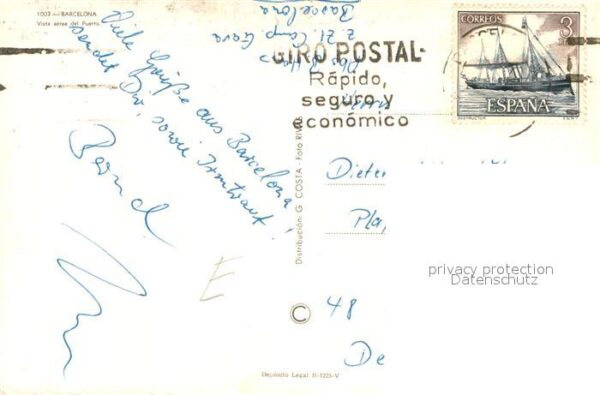 1003 - BARCELONA
Vista aérea del Puerto
Viele Grüße aus Barcelona
sendet Dir, sowie Irmtraut!
Bernd
Barcelona
GIRO POSTAL-
Rápido,
seguro y
económico
CORREOS
3
ESPAÑA
Distribución: G. COSTA - Foto
Dieter
Pla,
privacy protection
Datenschutz
E
C
48
De
Depósito Legal B-1225-V